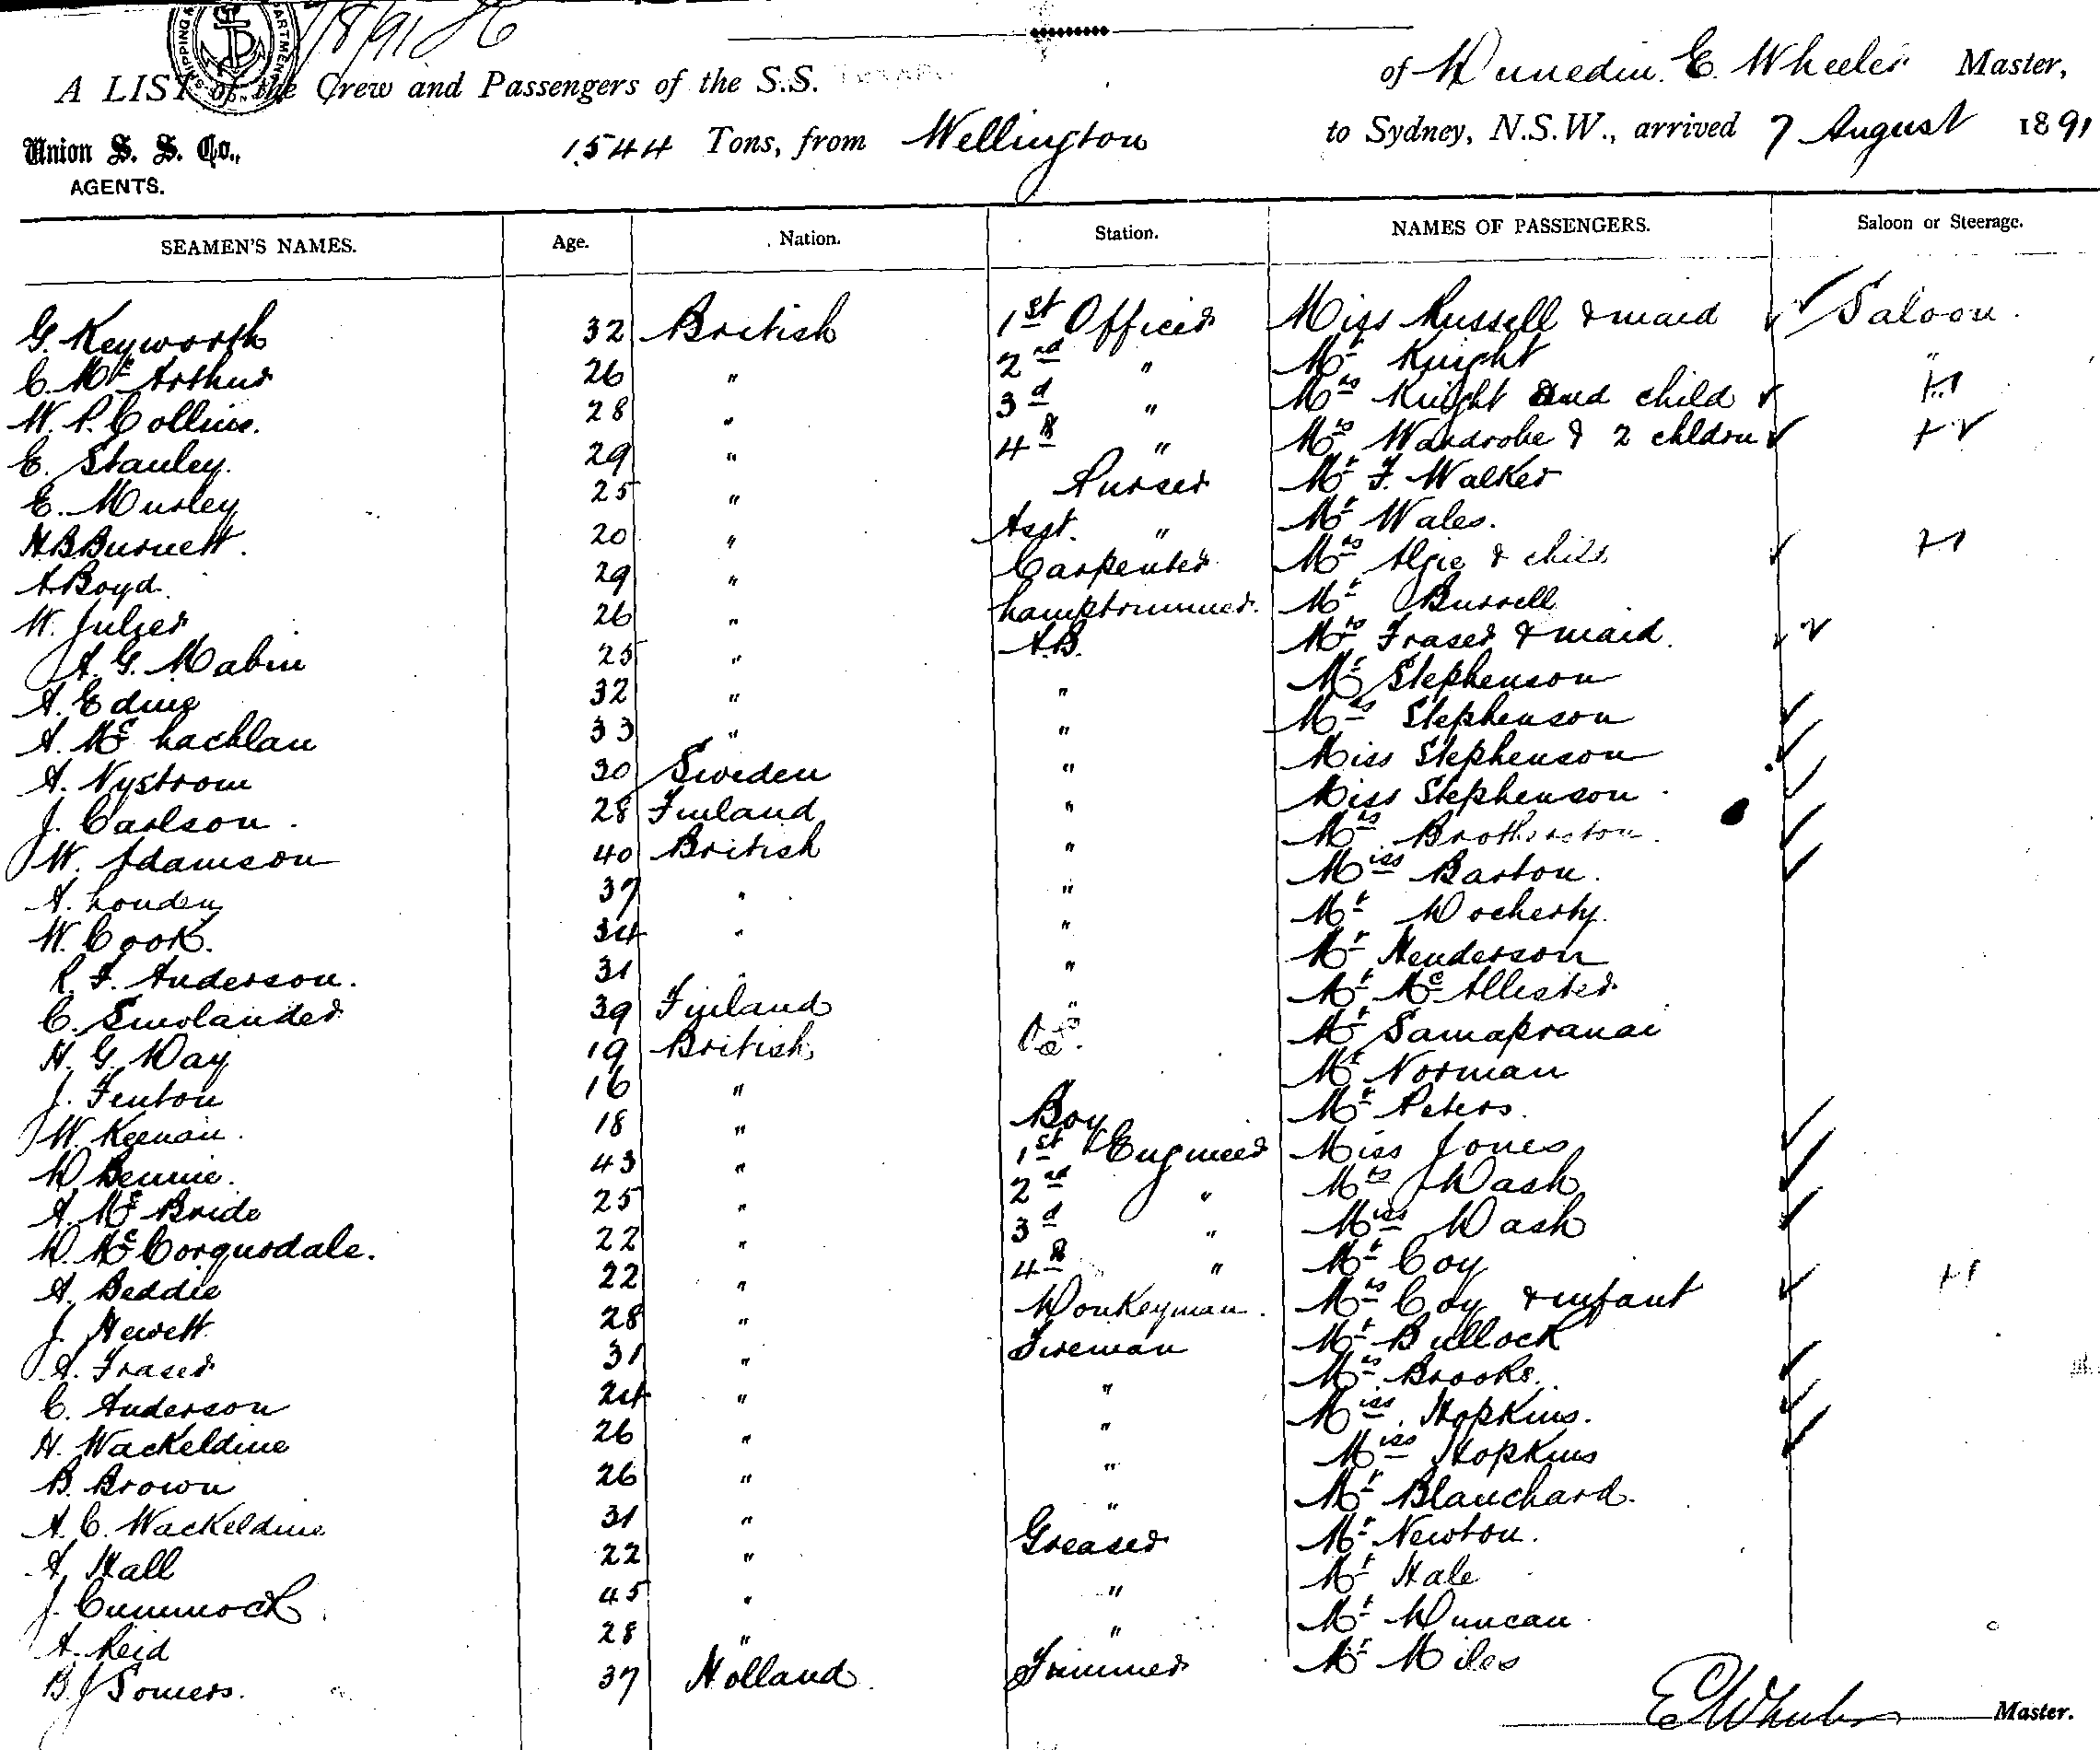 7/8/91
of Dunedin. E. Wheeler Master,
A LIST of the Crew and Passengers of the S.S.
Union S. S. Co., 1544 Tons, from Wellington to Sydney, N.S.W., arrived 7 August 1891
AGENTS.
SEAMEN'S NAMES. Age. Nation. Station. NAMES OF PASSENGERS. Saloon or Steerage.
G. Keyworth 32 British 1st Officer Miss Russell & maid Saloon.
C. Mc Arthur 26 " 2nd " Mr Knight "
W. P. Collins. 28 " 3d " Mrs Knight and child
E. Stanley. 29 " 4th " Mrs Wardrobe & 2 chldrn
E. Mursley 25 " Purser Mr F. Walker
H B Burnett. 20 " Asst. " Mr Wales.
A Boyd. 29 " Carpenter Mrs Algie & child
W. Julier 26 " Lamptrimmer. Mr Burrell
A. G. Mabin 25 " A.B. Mrs Fraser & maid.
A. Edine 32 " " Mr Stephenson
A. Mc Lachlan 33 " " Mrs Stephenson
A. Nystrom 30 Sweden " Miss Stephenson
J. Carlson. 28 Finland " Miss Stephenson
W. Adamson 40 British " Mrs Brotherston
A. Louden 37 " " Miss Barton.
W. Cook. 34 " " Mr Docherty.
R. F. Anderson. 31 " " Mr Henderson
C. Smolander 39 Finland " Mr Mc Allister
H. G. Day 19 British Mr Samapranai
J. Fenton 16 " Mr Norman
W. Keenan. 18 " Boy Mr Peters.
D. Bennie. 43 " 1st Engineer Miss Jones
A. Mc Bride 25 " 2nd " Mrs Dash
D. Mc Corquodale. 22 " 3d " Miss Dash
A. Beddie 22 " 4th " Mr Coy
J. Hewett 28 " Donkeyman. Mrs Coy & infant
A. Fraser 31 " Fireman Mr Bullock
C. Anderson 24 " " Mrs Brooke.
H. Wackeldine 26 " " Miss Hopkins.
B. Brown 26 " " Miss Hopkins
A. C. Wackeldine 31 " " Mr Blanchard.
A. Hall 22 " Greaser Mr Newton.
J. Cummock 45 " " Mr Hale
A. Reid 28 " " Mr Duncan
B. J Somers. 37 Holland Trimmer Mr Miles
E Wheeler Master.